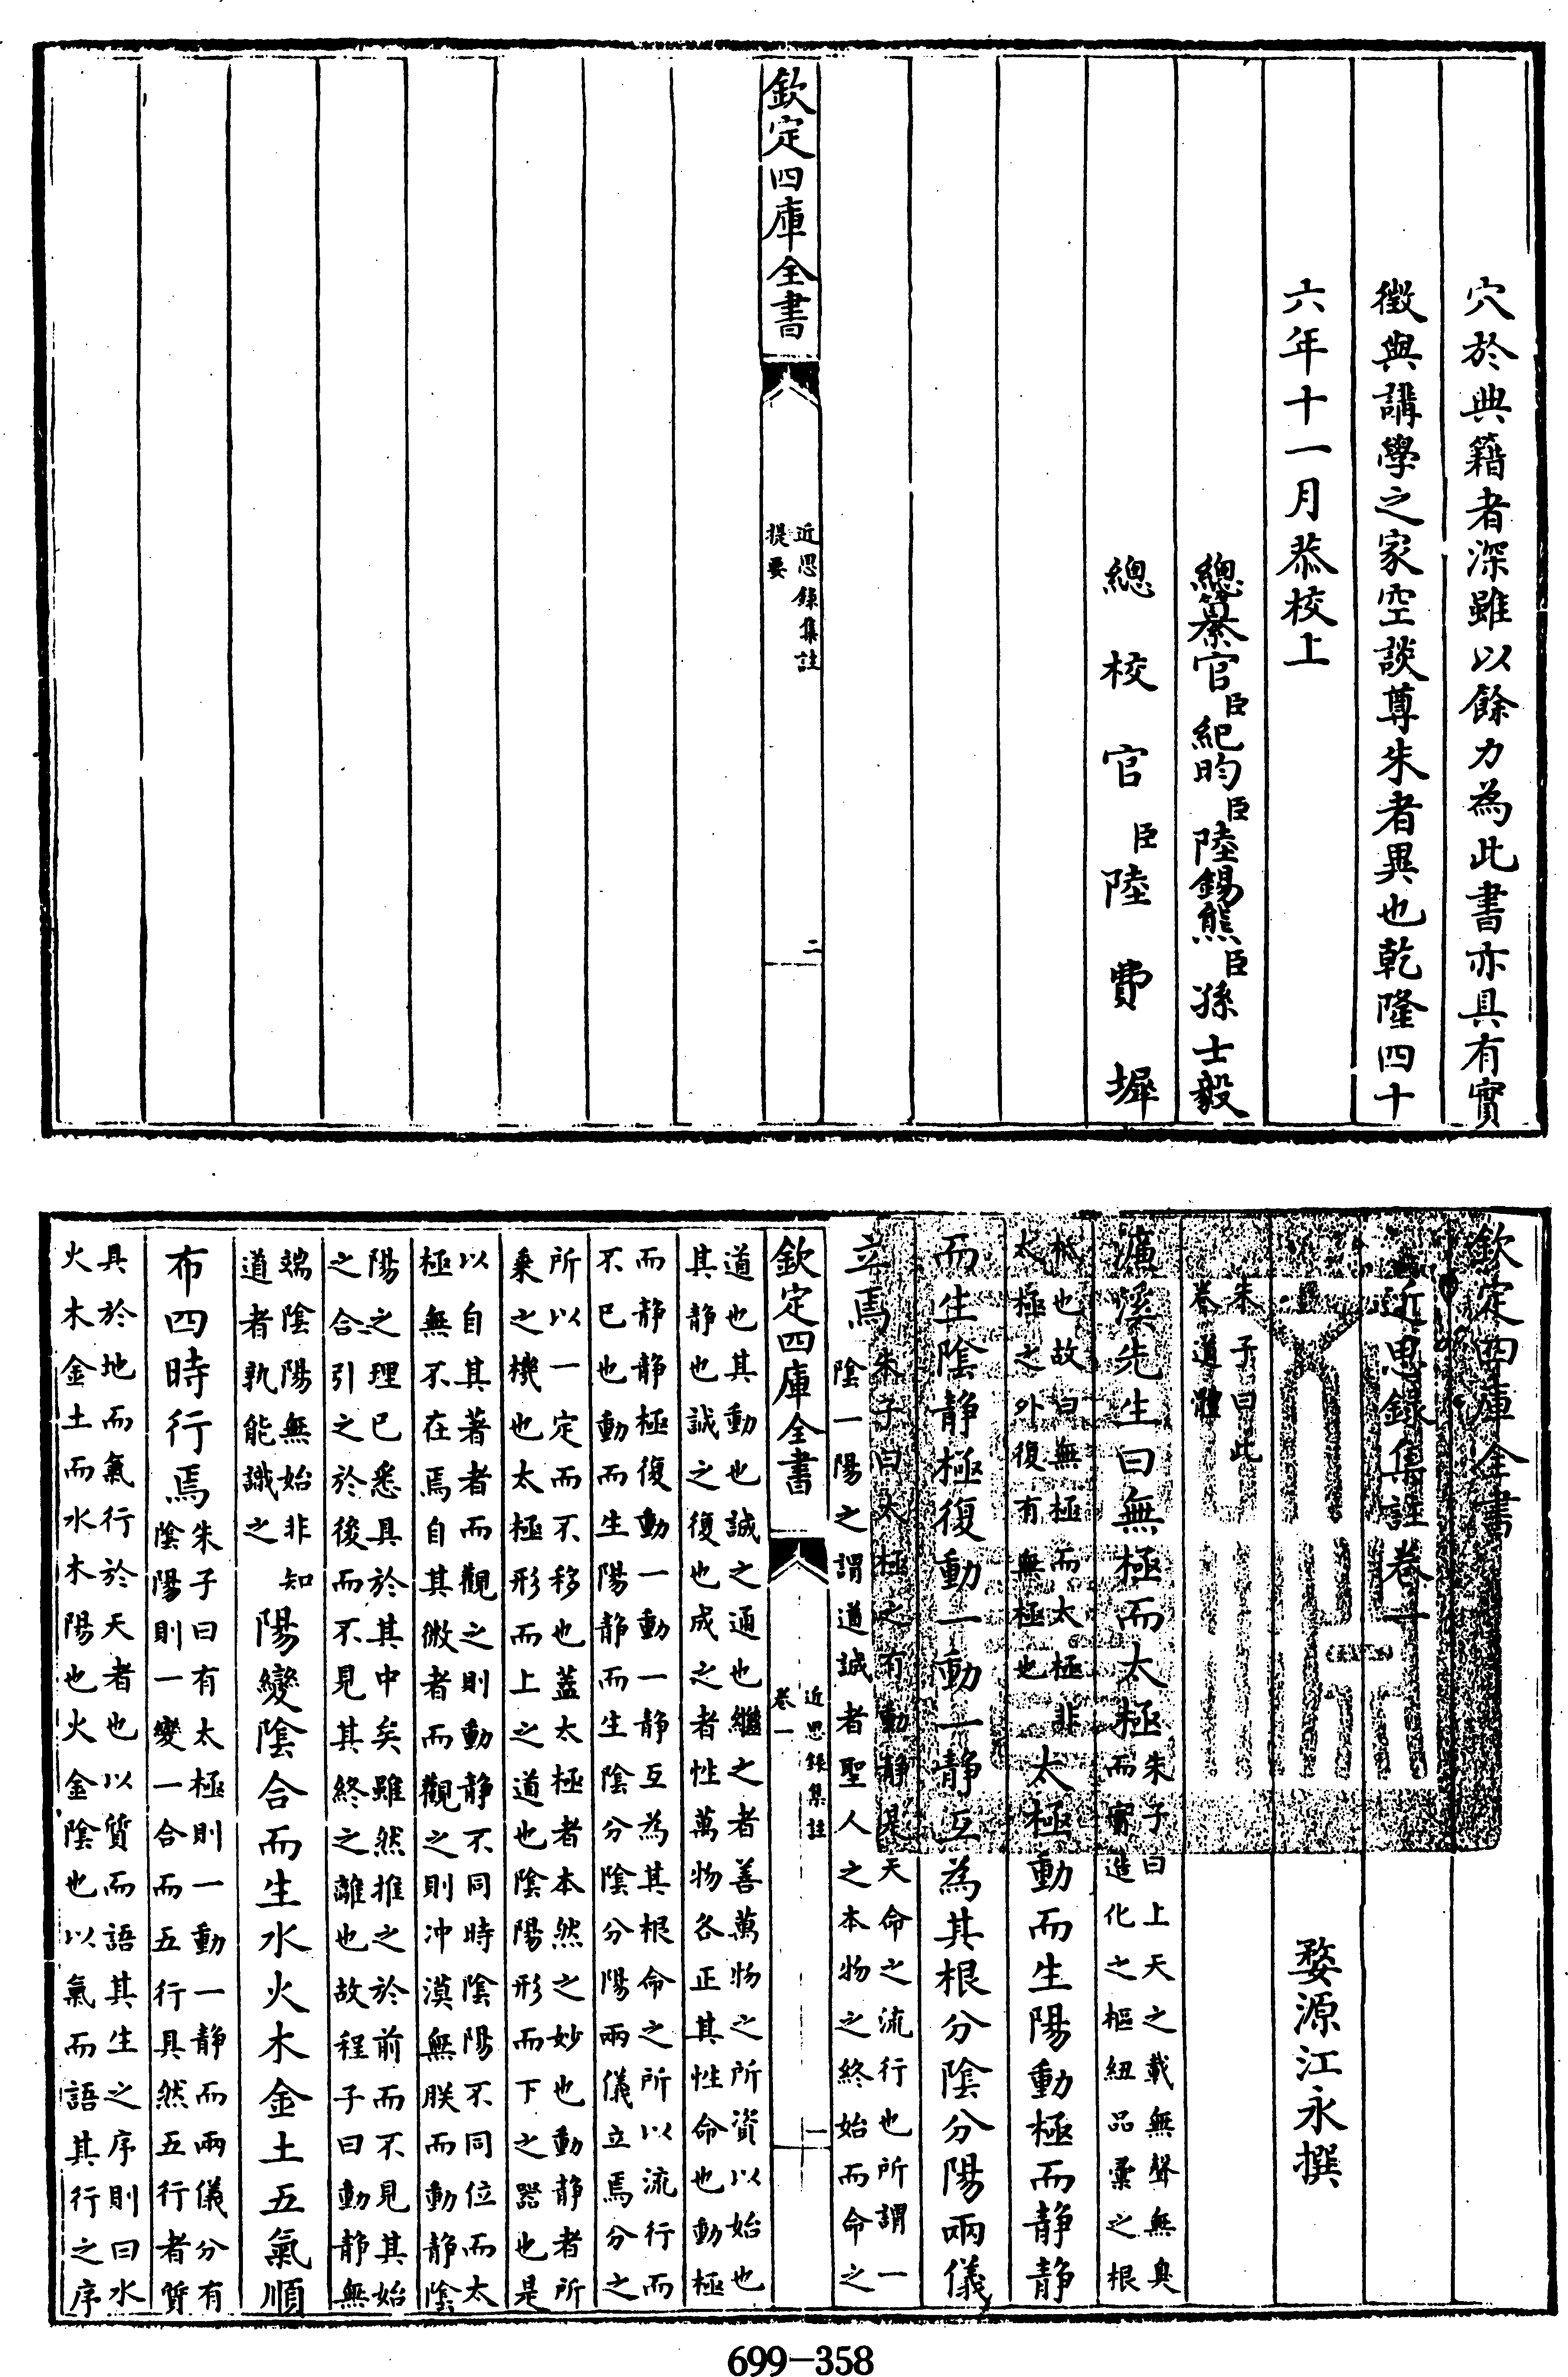 穴於典籍者深雖以餘力為此書亦具有實
徵與講學之家空談尊朱者異也乾隆四十
六年十一月恭校上
總纂官臣紀昀臣陸錫熊臣孫士毅
總校官臣陸費墀
欽定四庫全書
近思錄集註
提要
二
欽定四庫全書
近思錄集註卷一
婺源江永撰
朱子曰此
卷道體
濂溪先生曰無極而太極
朱子曰上天之載無聲無臭
而實造化之樞紐品彙之根
柢也故曰無極而太極非
太極之外復有無極也
太極動而生陽動極而靜靜
而生陰靜極復動一動一靜互為其根分陰分陽兩儀
立焉
朱子曰太極之有動靜是天命之流行也所謂一
陰一陽之謂道誠者聖人之本物之終始而命之
道也其動也誠之通也繼之者善萬物之所資以始也
其靜也誠之復也成之者性萬物各正其性命也動極
而靜靜極復動一動一靜互為其根命之所以流行而
不已也動而生陽靜而生陰分陰分陽兩儀立焉分之
所以一定而不移也蓋太極者本然之妙也動靜者所
乘之機也太極形而上之道也陰陽形而下之器也是
以自其著者而觀之則動靜不同時陰陽不同位而太
極無不在焉自其微者而觀之則冲漠無朕而動靜陰
陽之理已悉具於其中矣雖然推之於前而不見其始
之合引之於後而不見其終之離也故程子曰動靜無
端陰陽無始非知
道者孰能識之
陽變陰合而生水火木金土五氣順
布四時行焉
朱子曰有太極則一動一靜而兩儀分有
陰陽則一變一合而五行具然五行者質
具於地而氣行於天者也以質而語其生之序則曰水
火木金土而水木陽也火金陰也以氣而語其行之序
欽定四庫全書
近思錄集註
卷一
一
699-358